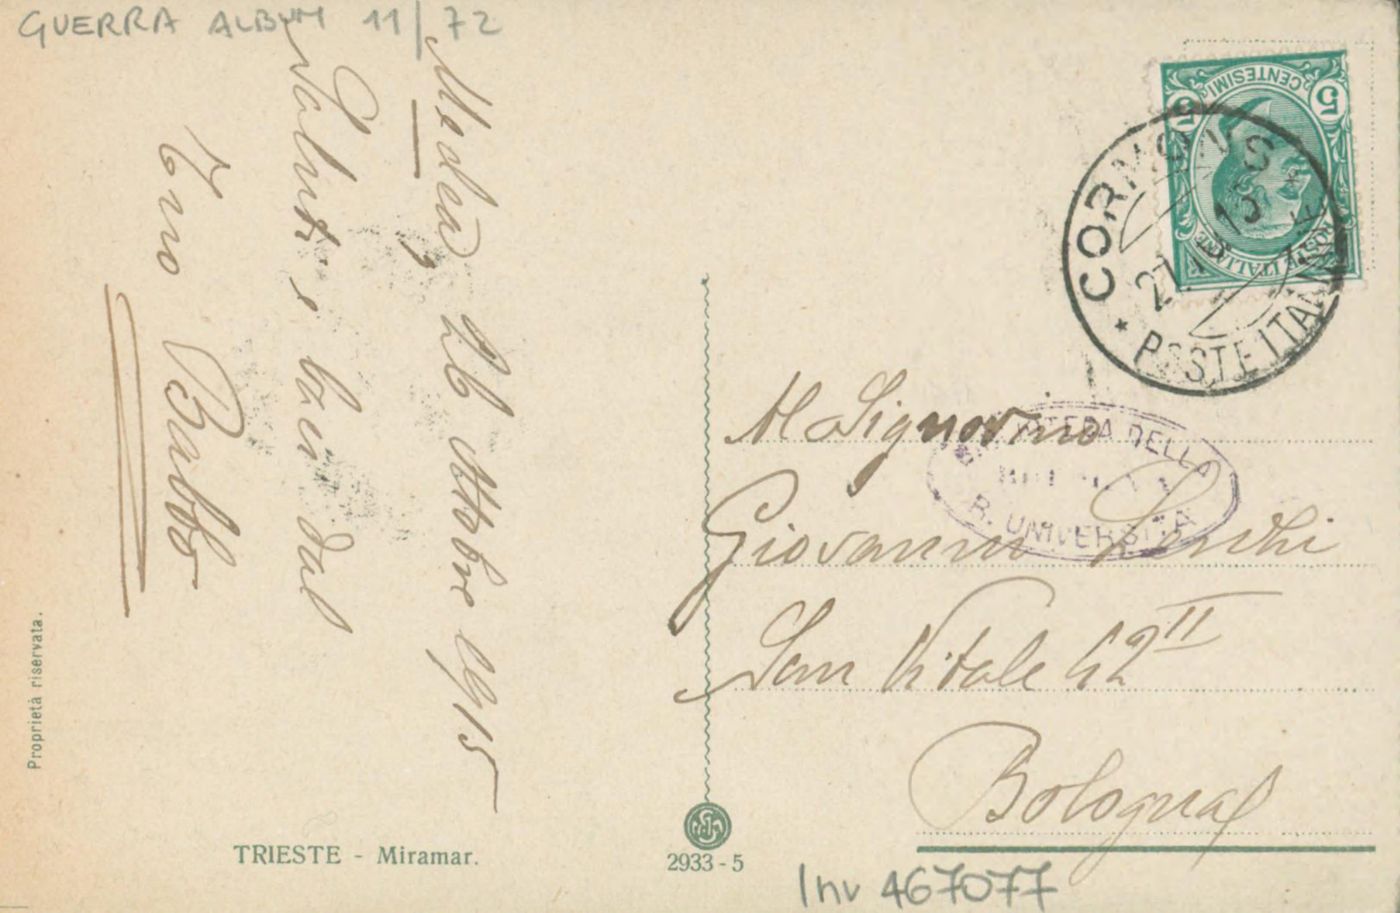 GUERRA ALBUM 11/72
Medea, 26 Ottobre 1915
Saluti e baci dal
Tuo Babbo
Proprietà riservata.
TRIESTE - Miramar.
2933-5
5 CENTESIMI 5
POSTE ITALIANE
CORMONS
27. 15
* POSTE ITALIANE
Al Signorino
Giovanni
San Vitale 42 II
Bologna
BIBLIOTECA DELLA
R. UNIVERSITÀ
Inv 467077